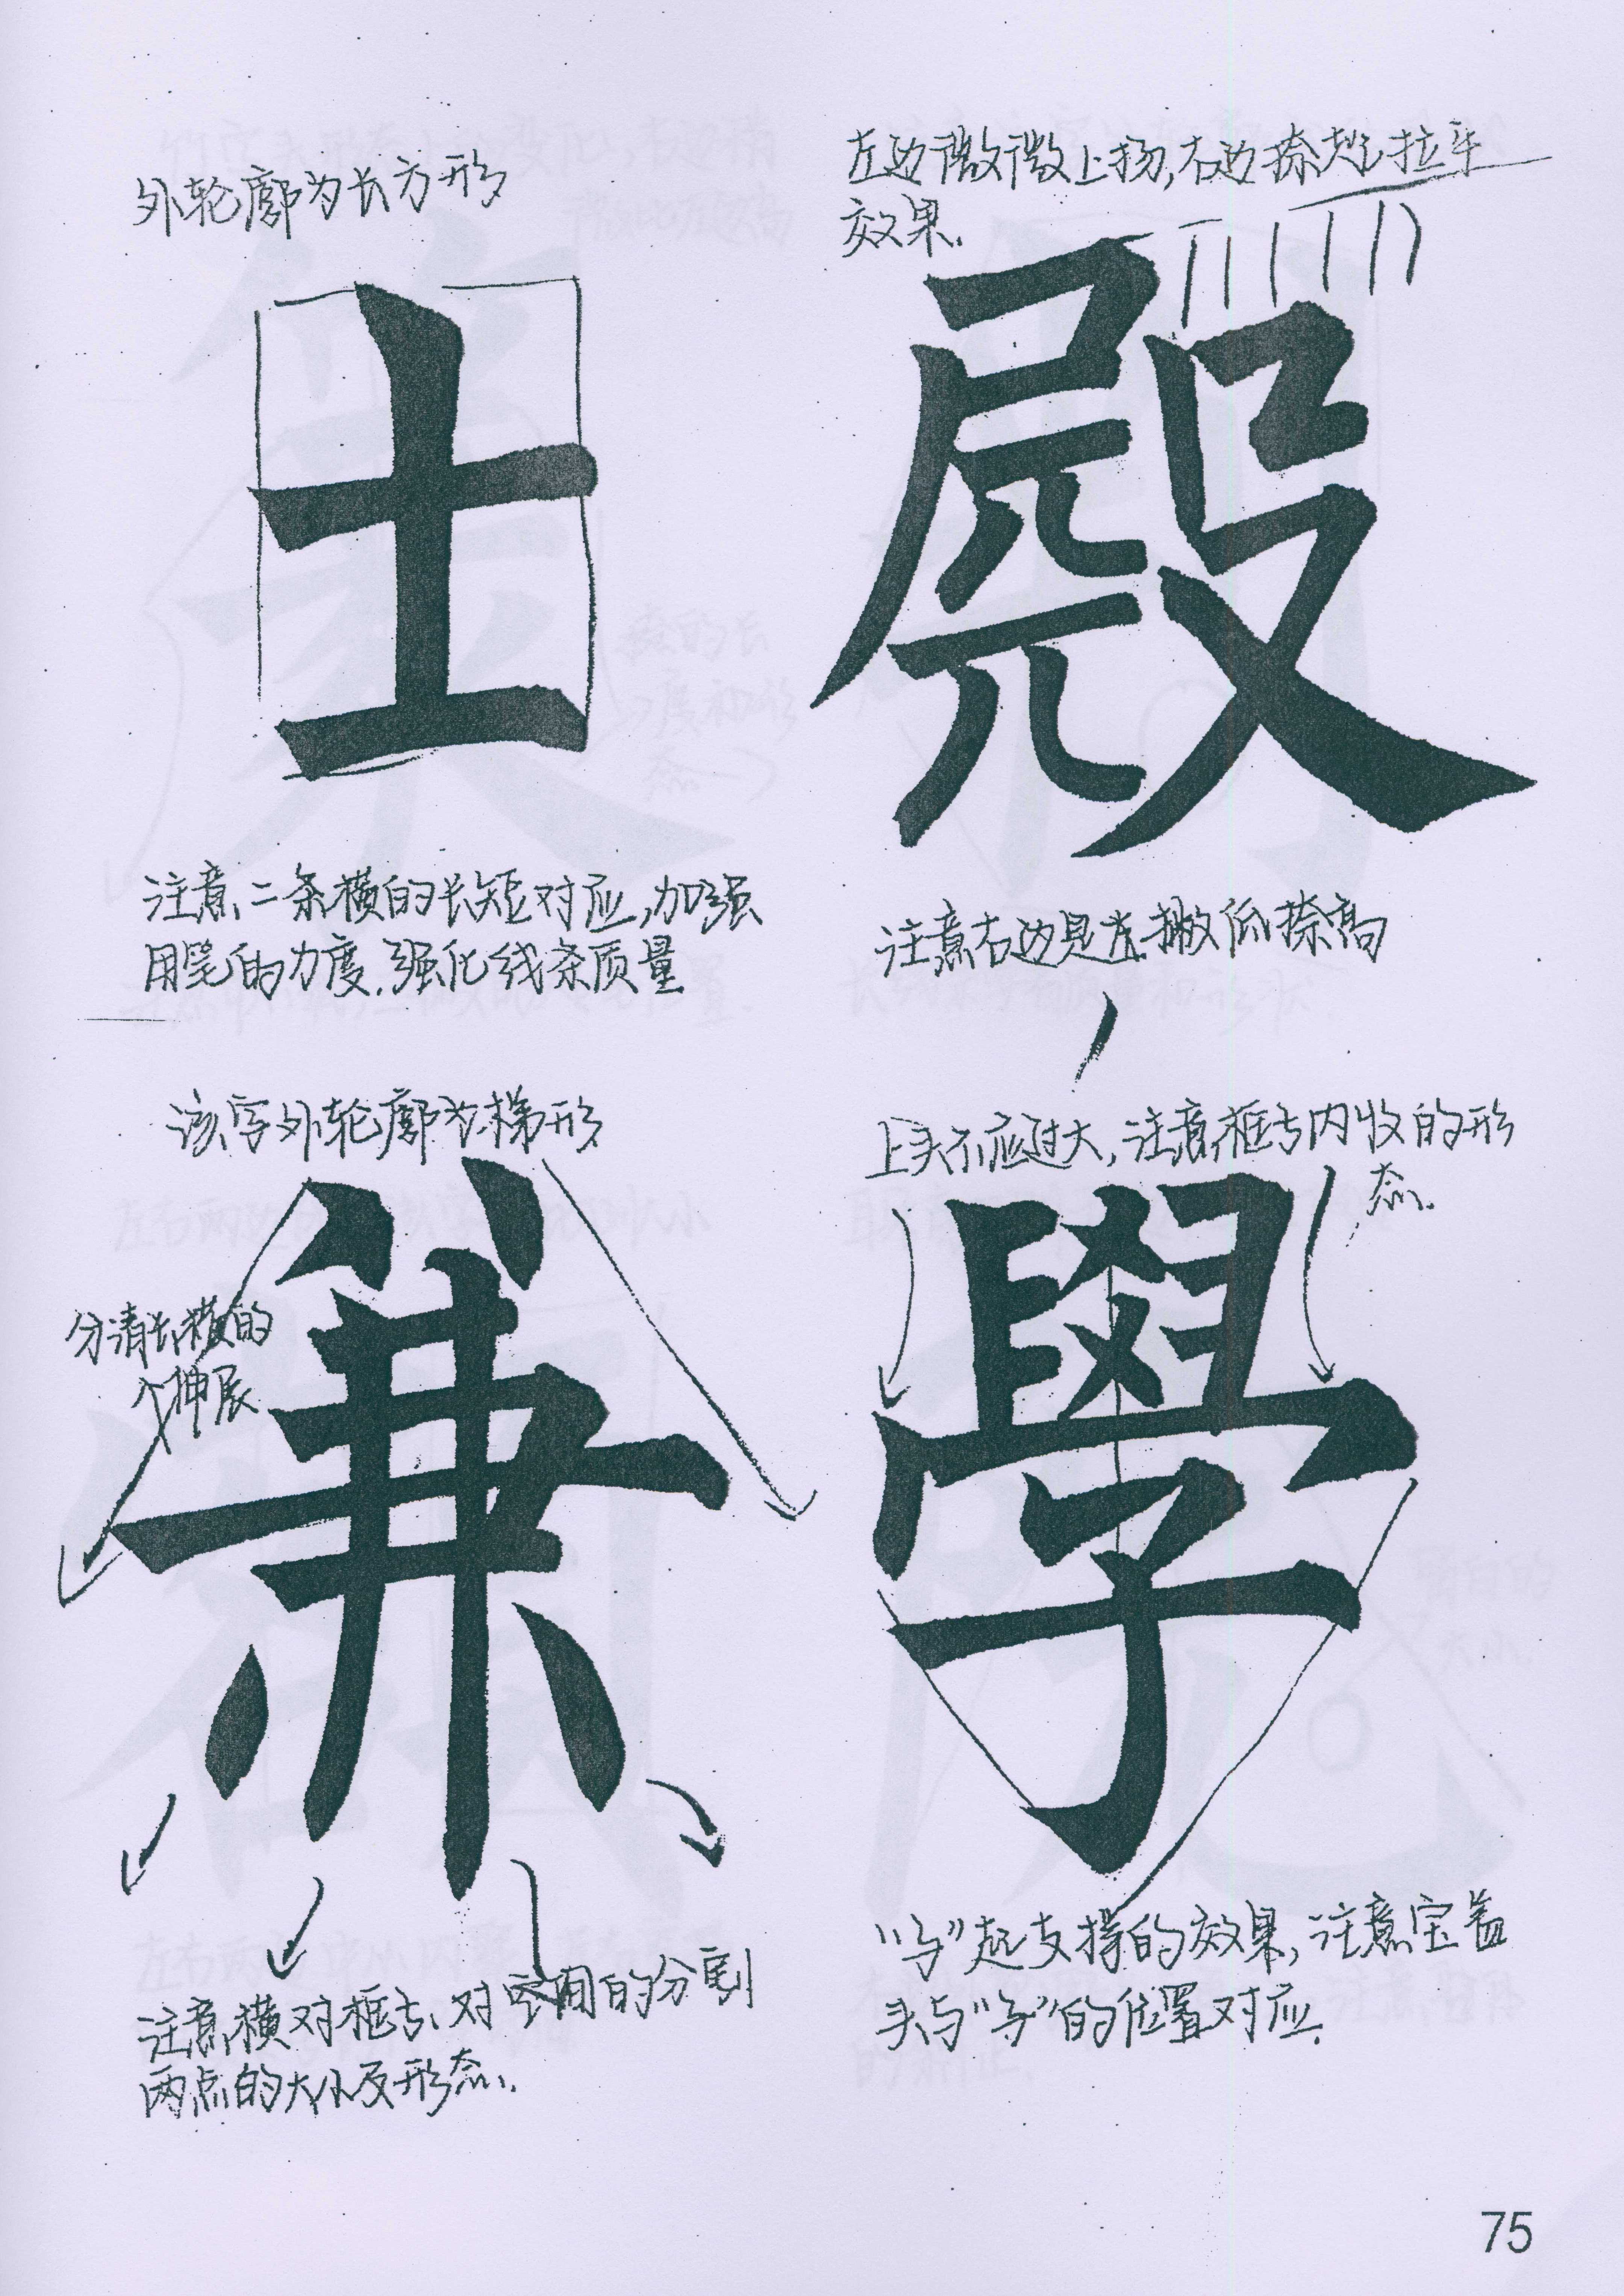 外轮廓为长方形
士
注意二条横的长短对应,加强
用笔的力度.强化线条质量
左边微微上扬,右边捺起拉平
效果.
殿
注意右边是撇低捺高
该字外轮廓为梯形
分清长横的
伸展
兼
注意横对框去、对空间的分割
两点的大小及形态.
上头不应过大,注意框去内收的形
态.
學
“子”起支撑的效果,注意宝盖
头与“子”的位置对应.
75